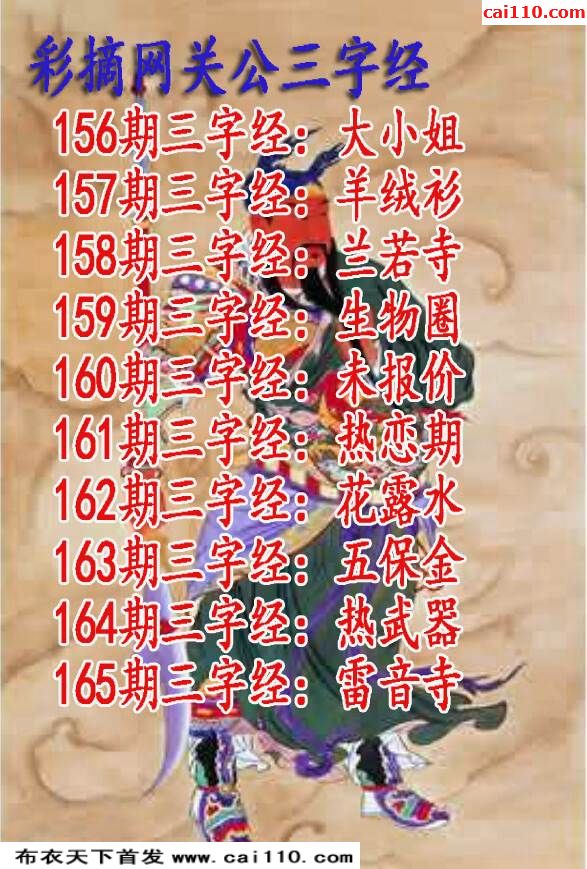 cai110.com
彩摘网关公三字经
156期三字经：大小姐
157期三字经：羊绒衫
158期三字经：兰若寺
159期三字经：生物圈
160期三字经：未报价
161期三字经：热恋期
162期三字经：花露水
163期三字经：五保金
164期三字经：热武器
165期三字经：雷音寺
布衣天下首发 www.cai110.com